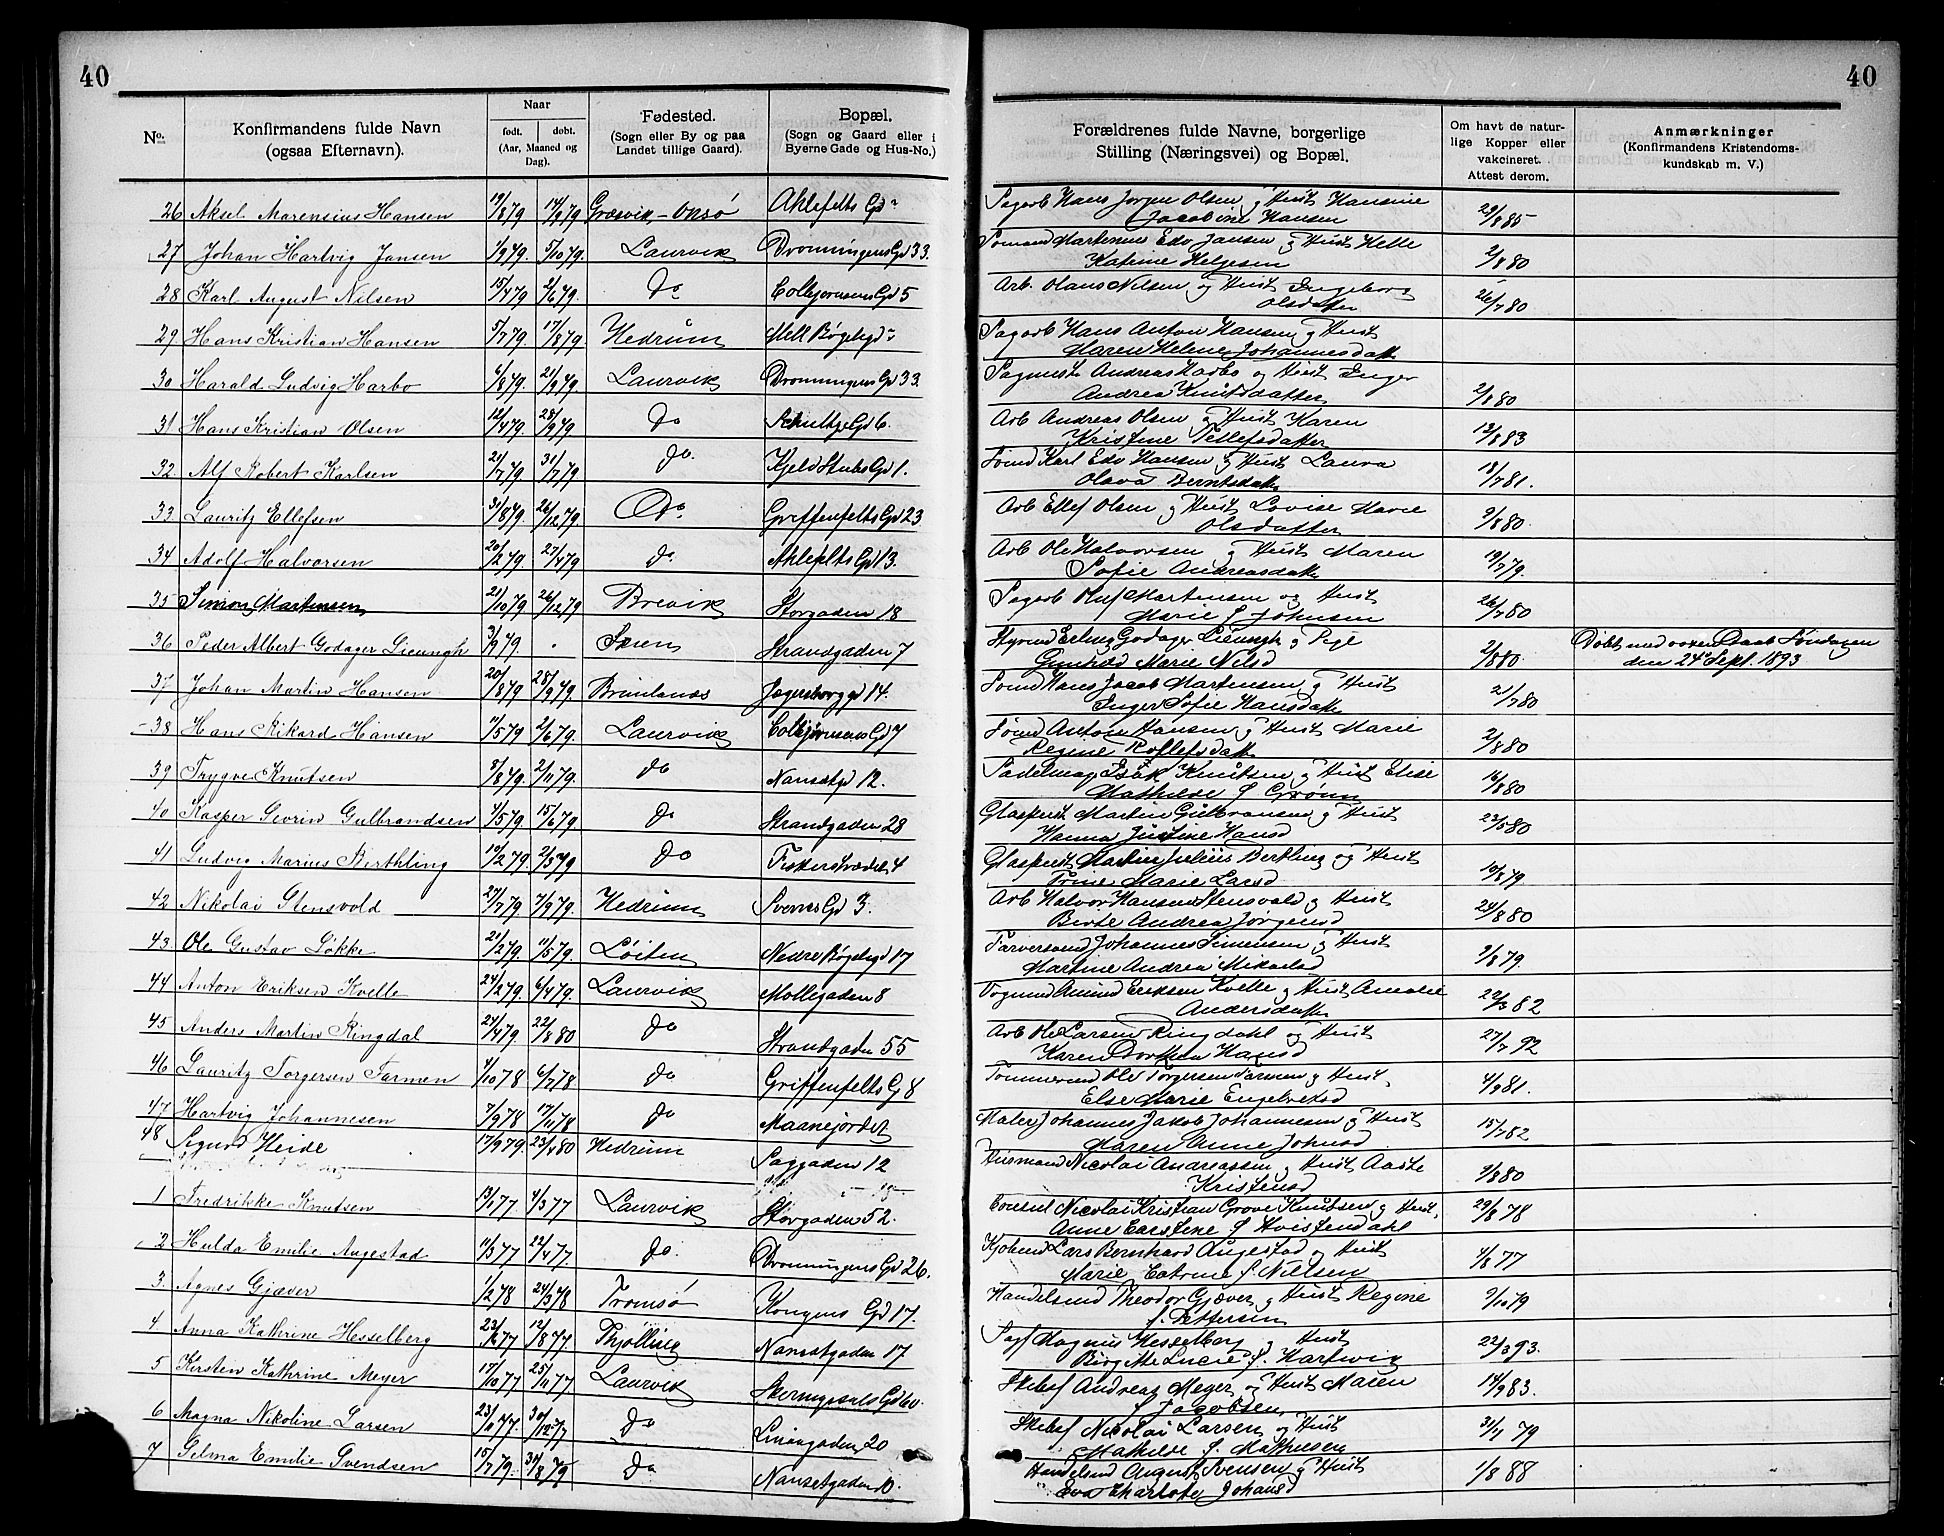 40
40
No.
Konfirmandens fulde Navn
(ogsaa Efternavn).
Naar
født. døbt.
(Aar, Maaned og Dag).
Fødested.
(Sogn eller By og paa
Landet tillige Gaard).
Bopæl.
(Sogn og Gaard eller i
Byerne Gade og Hus-No.)
Forældrenes fulde Navne, borgerlige
Stilling (Næringsvei) og Bopæl.
Om havt de natur-
lige Kopper eller
vakcineret.
Attest derom.
Anmærkninger
(Konfirmandens Kristendoms-
kundskab m. V.)
26 Aksel Marensius Hansen 19/8 79 14/9 79 Græsvik - Onsø Ahlefelts Gd Sagarb Hans Jørgen Olsen og Hust Hansine 29/8 85
Jacobine Hansen
27 Johan Hartvig Jansen 1/9 79. 5/10 79. Laurvik Dronningens Gd 33. Sømand Martenius Edv Jansen og Hust Helle 2/8 80
Katrine Helgesen
28 Karl August Nilsen 15/4 79 2/6 79. Do Colbjørnsens Gd 5 Arb. Olaus Nilsen og Hust Ingeborg 26/7 80
Olsdatter
29 Hans Kristian Hansen 5/7 79. 17/8 79 Hedrum Mell Bøgelygd Sagarb Hans Anton Hansen og Hust
Maren Helene Johannesdatt
30 Harald Ludvig Harbo 6/8 79. 21/9 79. Laurvik Dronningens Gd 33. Sagmest Andreas Harbo og Hust Inger 2/8 80
Andrea Knutsdatter
31 Hans Kristian Olsen 12/4 79. 28/9 79 Do Schultzes Gd 6. Arb Andreas Olsen og Hust Karen 12/8 83
Kristine Tellefsdatter
32. Alf Robert Karlsen 21/7 79. 31/7 79 Do. Kjeld Stubs Gd 1. Sømd Karl Edv Hansen og Hust Laura 18/7 81.
Olava Berntsdatt
33. Lauritz Ellefsen 31/8 79. 26/12 79 Do Griffenfelts Gd 23 Arb Ellef Olsen og Hust Lovise Marie 9/8 80.
Olsdatter
34 Adolf Halvorsen 20/2 79. 27/4 79 Do. Ahlefelts Gd 13. Arb Ole Halvorsen og Hust Maren 19/7 79.
Sofie Andreasdatt
35 Simon Martensen 21/10 79 26/12 79 Brevik Storgaden 18 Sagarb Oluf Martensen og Hust 26/7 80
Marie f Johnsen
36 Peder Albert Godager Lieungh 3/9 79. . Skien Strandgaden 7 Styrmd Erling Godager Lieungh og Pige 2/8 80 Døbt med voxen Daab Søndagen
Gunhild Marie Nilsd den 24de Sept. 1893
37 Johan Martin Hansen 20/8 79 28/9 79 Brunlanæs Jegersborggd 14. Sømd Hans Jacob Martensen og Hust 21/7 80
Inger Sofie Hansdatt
38 Hans Rikard Hansen 11/5 79 2/6 79. Laurvik Colbjørnsens Gd 7 Sømd Anton Hansen og Hust Marie 2/8 80
Regine Rollefsdatt
39 Trygve Knutsen 3/8 79. 2/11 79. do Nansetgd 12. Sadelmag Isak Knutsen og Hust Elise 16/8 80
Mathilde f Grønn
40 Kasper Sevrin Gulbrandsen 4/5 79 15/6 79 do Strandgaden 28 Glaspust Martin Gulbransen og Hust 23/5 80
Hanna Justine Hansd
41 Ludvig Marius Berthling 12/2 79. 2/5 79 do Fiskerstrædet 4 Glaspust Martin Julius Bertling og Hust 10/8 79
Trine Marie Larsd
42 Nikolai Stensvold 27/7 79 7/9 79. Hedrum Sverres Gd 3. Arb Halvor Hansen Stensvold og Hust 24/8 80
Berte Andrea Jørgensd
43. Ole Gustav Løkke 21/2 79. 11/5 79. Løiten Nedre Bøgelygd 17 Farversvend Johannes Simensen og Hust 9/8 79.
Martine Andrea Mikaelsd
44 Anton Eriksen Kvelle 24/2 79. 6/4 79. Laurvik Møllegaden 8 Togmand Amund Eriksen Kvelle og Hust Amalie 22/3 82
Andersdatt
45 Anders Martin Ringdal 24/4 79 22/8 80 do Strandgaden 55 Arb Ole Larsen Ringdahl og Hust 27/7 92
Karen Dorthea Hansd
46 Lauritz Torgersen Farmen 4/10 78 6/7 78 do Griffenfelts Gd 8 Tømmermd Ole Torgersen Farmen og Hust. 4/9 81.
Else Marie Engebretsd
47 Hartvig Johannesen 7/9 78 17/11 78 do Maanejordet Maler Johannes Jakob Johannesen og Hust 15/7 82
Maren Anne Johnsd
48 Sigurd Heide 17/9 79. 23/4 80 Hedrum Saggaden 12 Husmand Nicolai Andreassen og Hust Aaste 9/8 80
Kristensd
1 Fredrikke Knutsen 13/1 77 4/3 77 Laurvik Storgaden 52. Consul Nicolai Kristian Grove Knudsen og Hust. 29/8 78
Anne Carstine f Hvistendahl
2 Hulda Emilie Augestad 11/3 77 22/4 77. do. Dronningens Gd 26. Kjøbmd Lars Bernhard Augestad og Hust 4/8 77
Marie Catrine f. Nielsen
3. Agnes Gjæver 1/2 78 24/3 78 Tromsø Kongens Gd 17. Handelsmd Theodor Gjæver og Hust Regine 9/10 79
f. Pettersen
4 Anna Kathrine Hesselberg 23/6 77 12/8 77. Thjølling Nansetgaden 17 Sagf Magnus Hesselberg og Hust 22/3 93.
Birgitte Lucie f. Hartwig
5 Kirsten Kathrine Meyer 17/10 77 25/11 77 Laurvik Skeringsals Gd 60. Skibsf Andreas Meyer og Hust Maren 14/9 83.
f Jacobsen
6 Magna Nikoline Larsen 23/10 77. 30/12 77 do Linaagaden 20 Skibsf Nicolai Larsen og Hust 31/7 79
Mathilde f. Mathiesen
7 Selma Emilie Svendsen 15/7 79. 31/8 79 do Nansetgaden 10. Handelsmd August Svensen og Hust 1/8 88
Eva Charlote Johansd